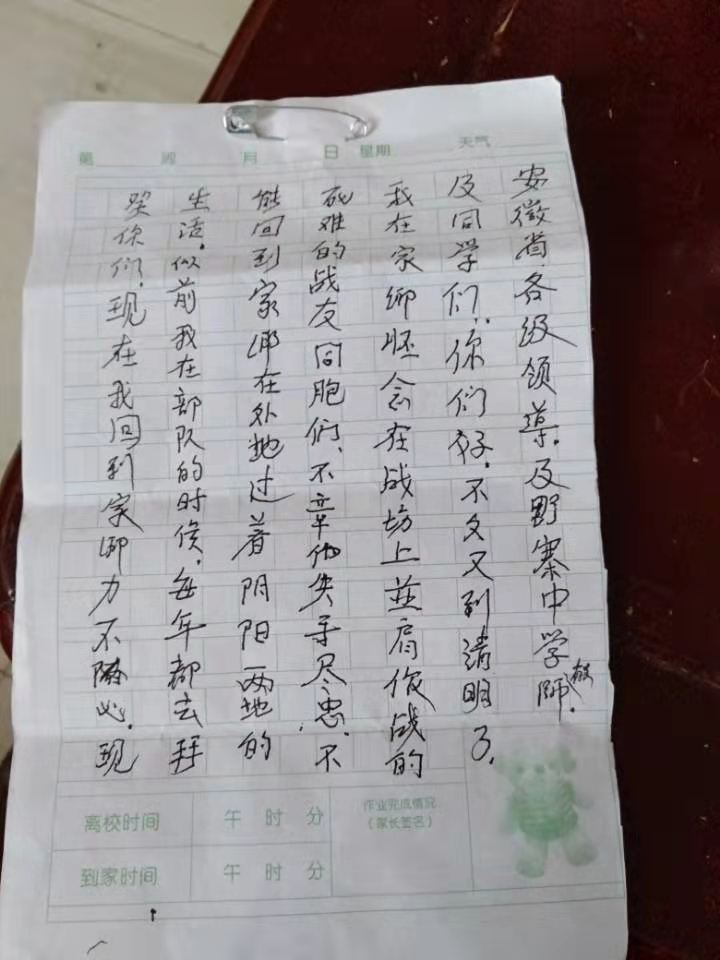 第 周 月 日 星期 天气
安徽省各级领导.及野寨中学教师.
及同学们:你们好.不久又到清明了,
我在家鄉怀念在战场上並肩作战的
死难的战友同胞们、不幸他失寻尽忠,不
能回到家鄉在外地过着阴阳两地的
生活.似前我在部队的时侯,每年都去拜
望你们,现在我回到家鄉力不随心.现
离校时间 午 时 分
作业完成情况
（家长签名）
到家时间 午 时 分